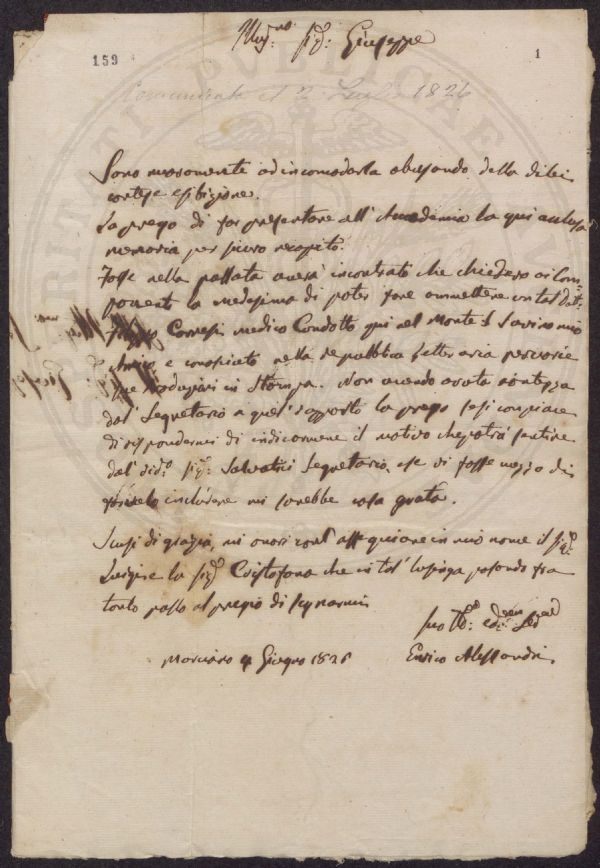 159
1
Mag.no Sig.r Giuseppe
Comunicata il 2. Luglio 1826
Sono nuovamente ad incomodarla abusando della di lei
cortese esibizione.
La prego di far presentare all'Accademia la qui acclusa
memoria per sicuro recapito.
Fosse nella passata aveva incontrato che chiedevo ai Com-
ponenti la medesima di poter fare ammettere un tal Dott.
Corresi medico Condotto qui al Monte S. Savino mio
Amico, e conosciuto nella repubblica letteraria per varie
sue produzioni in Stampa. Non avendo avuta contezza
dal Segretario a quel rapporto la prego se si compiace
di rispondermi di indicarmene il motivo che potrà sentire
dal Sig.r Salvatici Segretario, che se vi fosse mezzo di
farcelo includere mi sarebbe cosa grata.
Scusi di grazia, mi onori con l' assequiare in mio nome il Sig.r
Luigi e la Sig.ra Cristofana che in tal lusinga pasando fra
tanto passo al pregio di segnarmi
Marciano 4 Giugno 1826
Enrico Alessandri